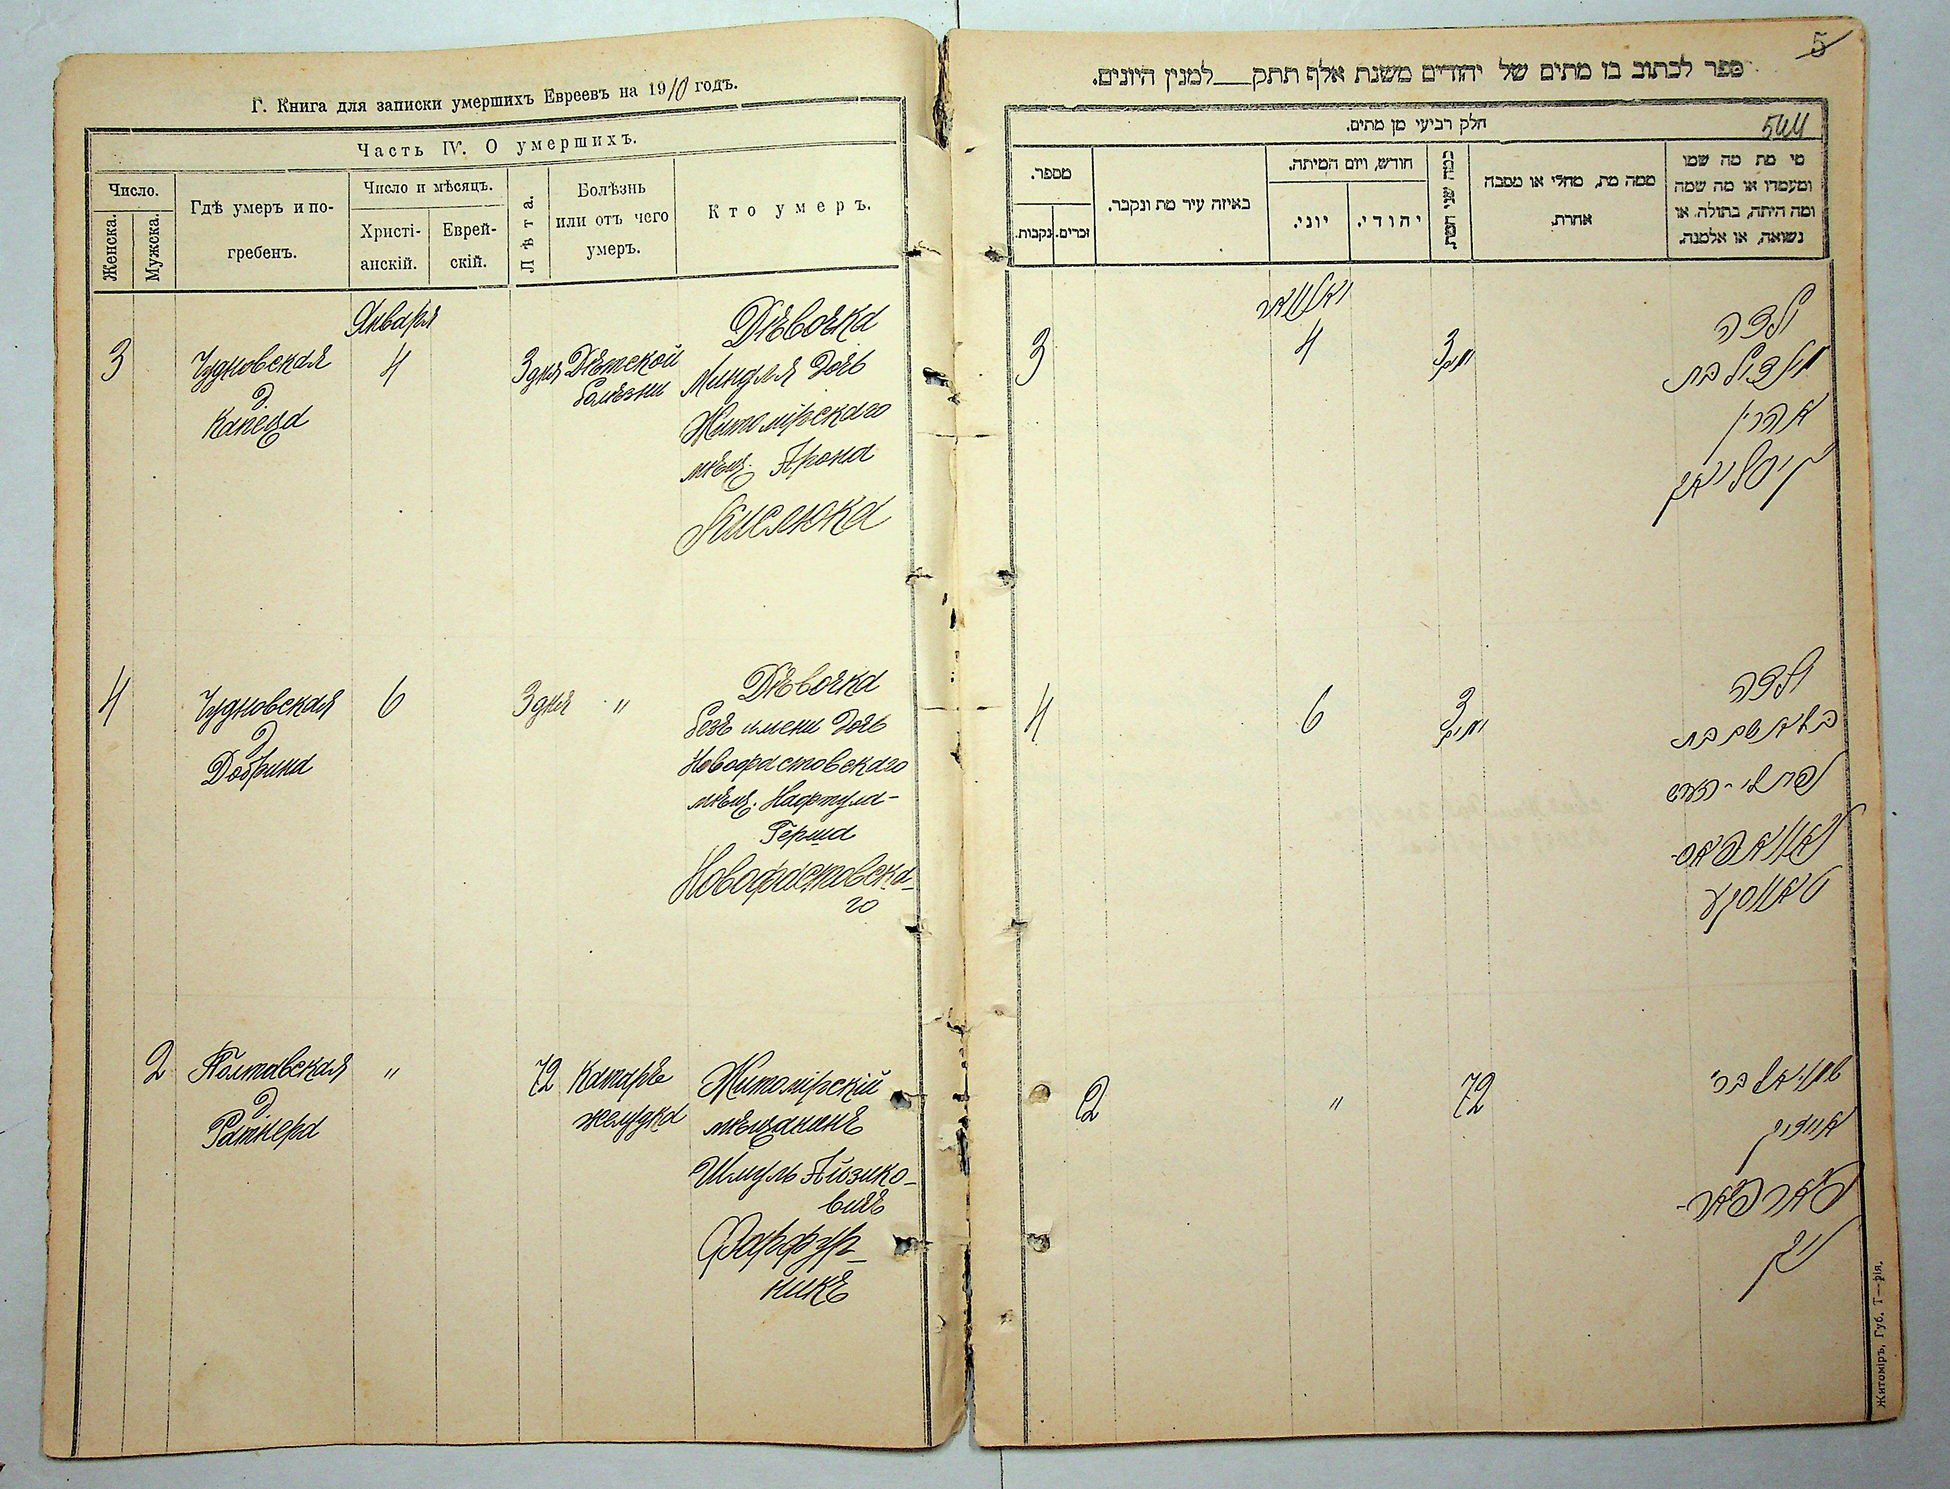 Г. Книга для записки умершихъ Евреевъ на 1910 годъ.
Часть IV. О умершихъ.
Число.
Женска.
Мужска.
Гдѣ умеръ и по-
гребенъ.
Число и мѣсяцъ.
Христі-
анскій.
Еврей-
скій.
Лѣта.
Болѣзнь
или отъ чего
умеръ.
Кто умеръ.
Января
3
Чудновская
д
Канеца
4
3 дня
Дѣтской
болѣзни
Дѣвочка
Миндля дочь
Житомірскаго
мѣщ. Арона
Кислюка
4
Чудновская
д
Добрина
6
3 дня
"
Дѣвочка
безъ имени дочь
Новофастовскаго
мѣщ. Нафтула-
Герша
Новофастовска-
го
2
Полтавская
д
Ратнера
"
72
Катаръ
желудка
Житомірскій
мѣщанинъ
Шмуль Айзико-
вичъ
Фарфур-
никъ
5
ספר לכתוב בו מתים של יהודים משנת אלף תתק___למנין היונים.
חלק רביעי מן מתים.
544
מספר.
נקבות.
זכרים.
באיזה עיר מת ונקבר.
חודש, ויום המיתה.
יוני.
יהודי.
כמה שני המת.
ממה מת, מחלי או מסבה
אחרת.
מי מת מה שמו
ומעמדו או מה שמה
ומה היתה, בתולה, או
נשואה, או אלמנה.
יאנוואר
3
4
3
ימים
ילדה
מינדיל בת
אהרן
קיסליוק
4
6
3
ימים
ילדה
בלא שם בת
נפתלי-הערש
נאוואפאס-
טאווסקע
2
"
72
שמואל בר'
אייזיק
פארפאר-
ניק
Житоміръ, Губ. Т—рія.